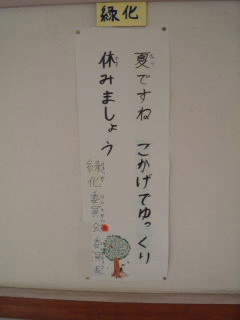 緑化
夏ですね こかげでゆっくり
休みましょう
緑化委員会